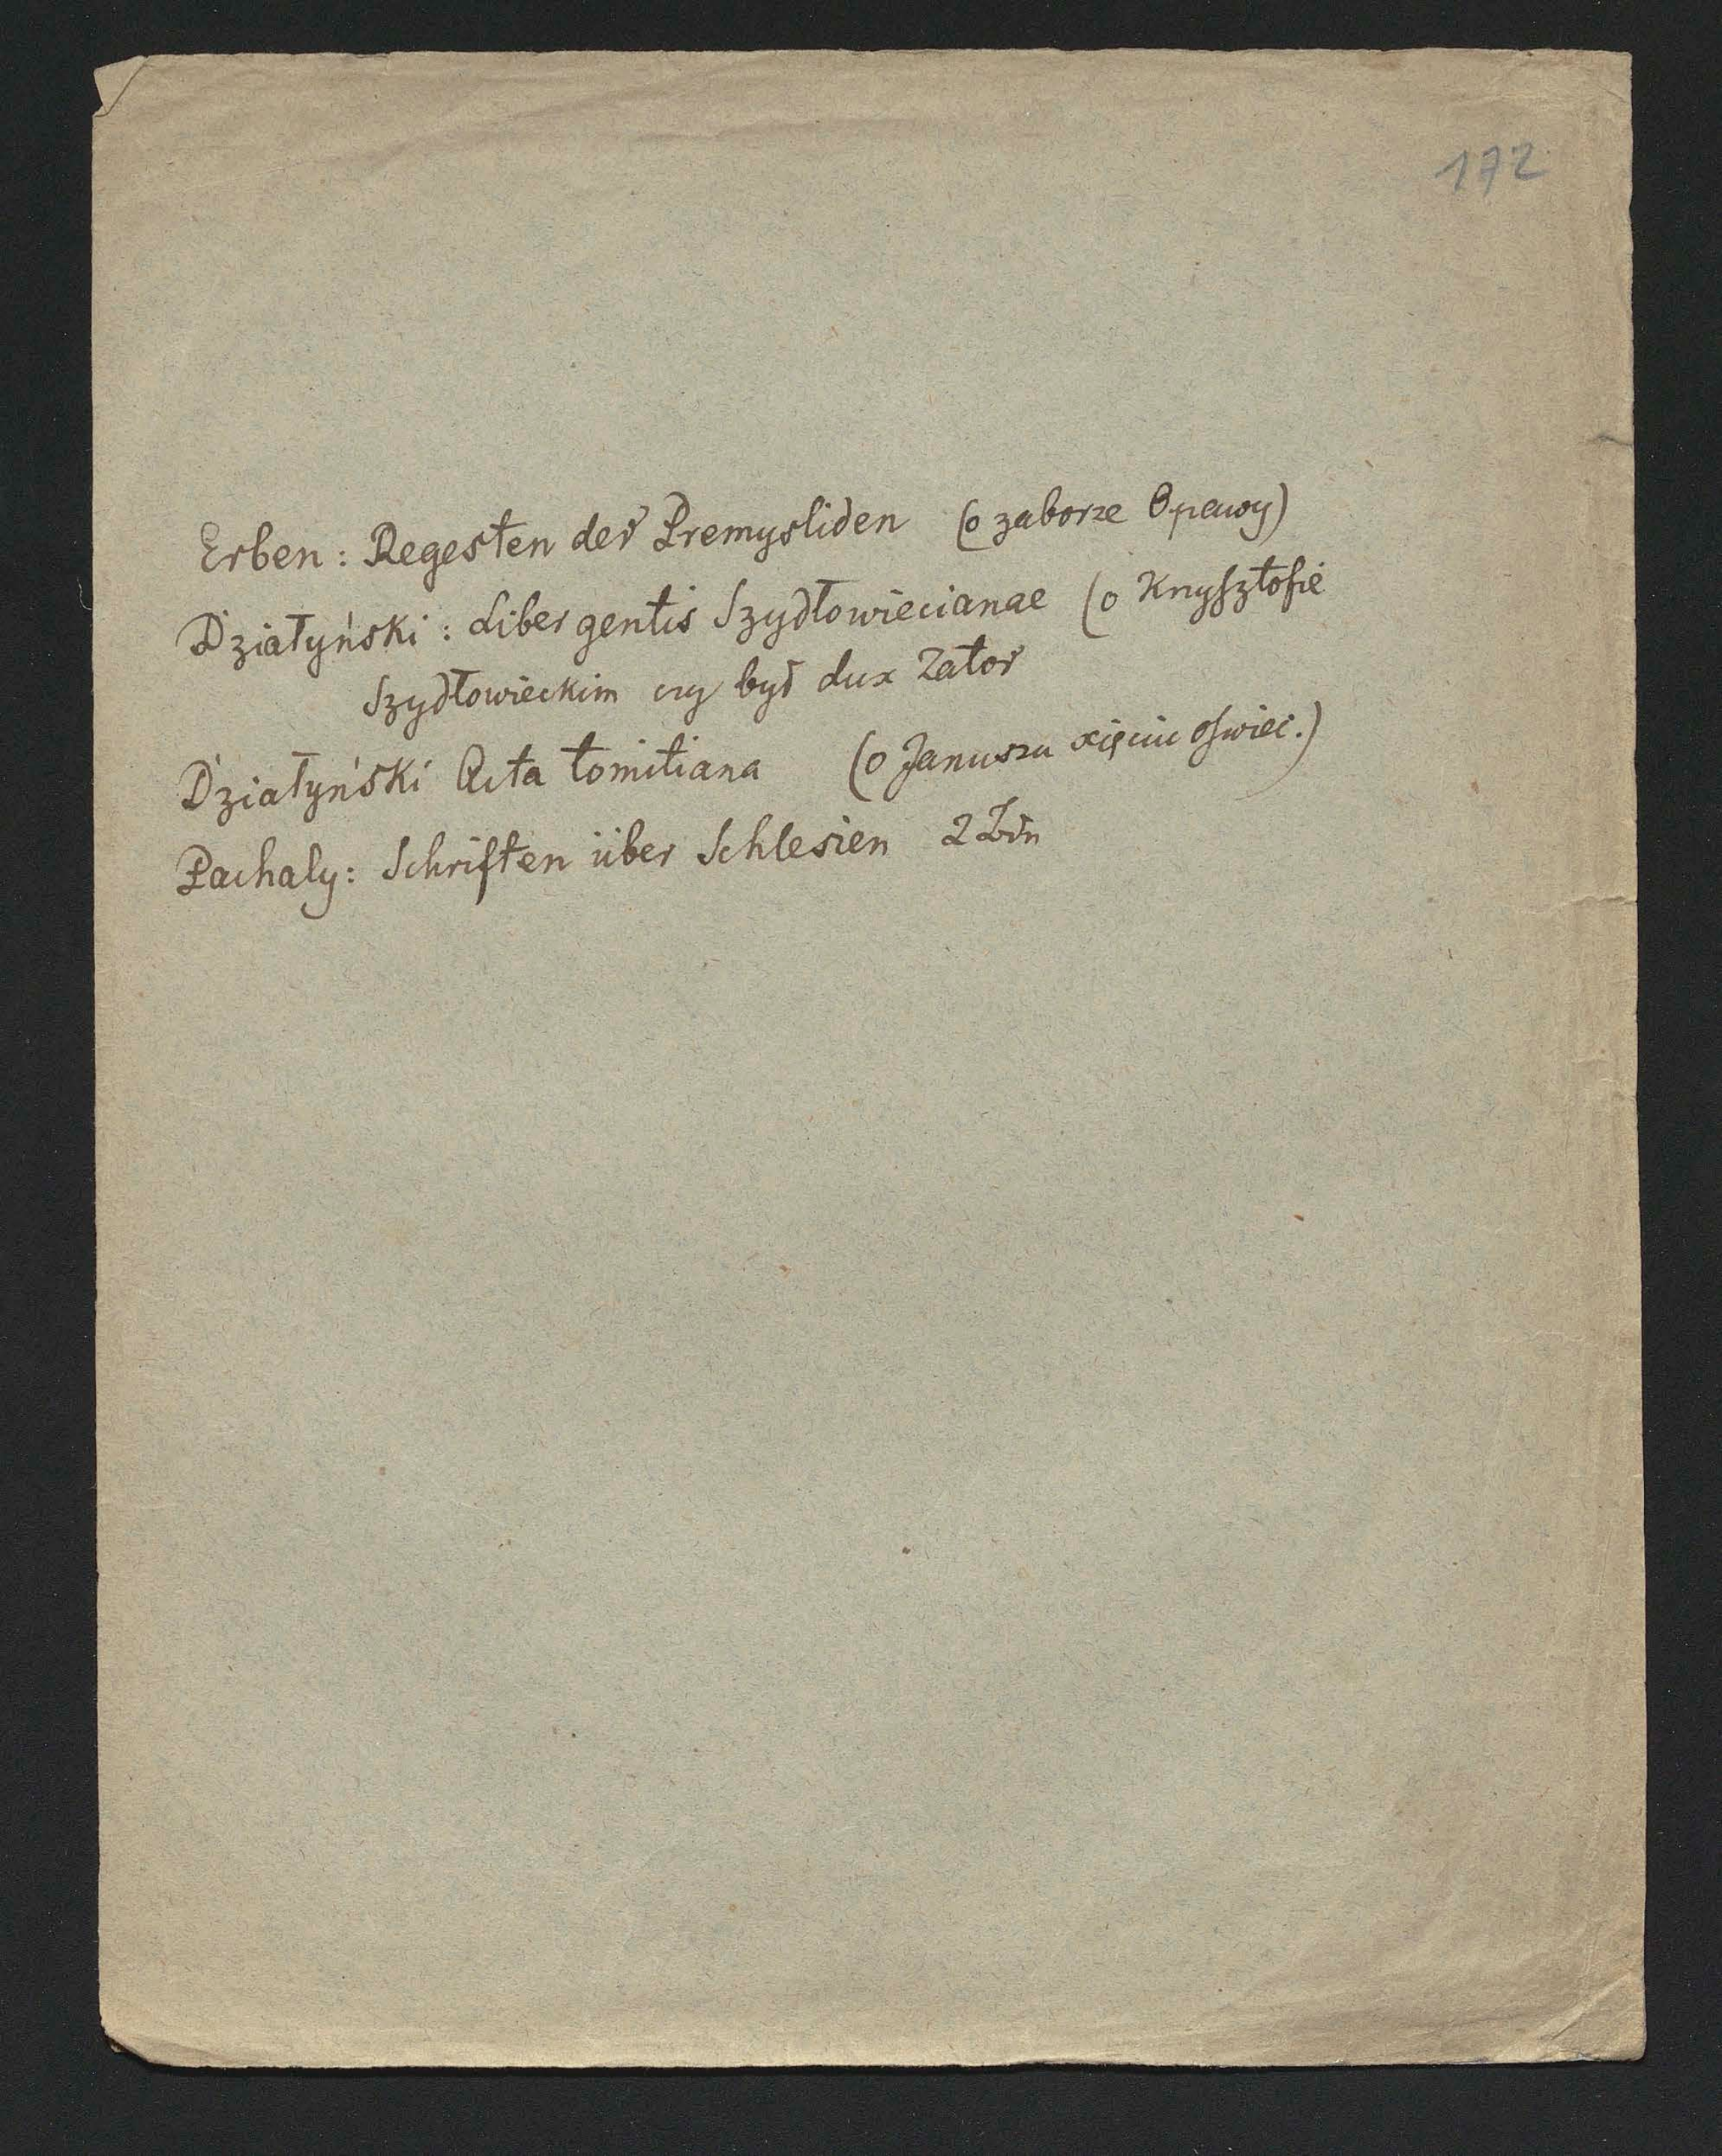 172
Erben: Regesten der Premysliden (o zaborze Opawy)
Działyński: Liber gentis Szydłowiecianae (o Krzysztofie
Szydłowieckim czy był dux Zator
Działyński Acta tomitiana (o Januszu xięciu Oswiec.)
Pachaly: Schriften über Schlesien 2